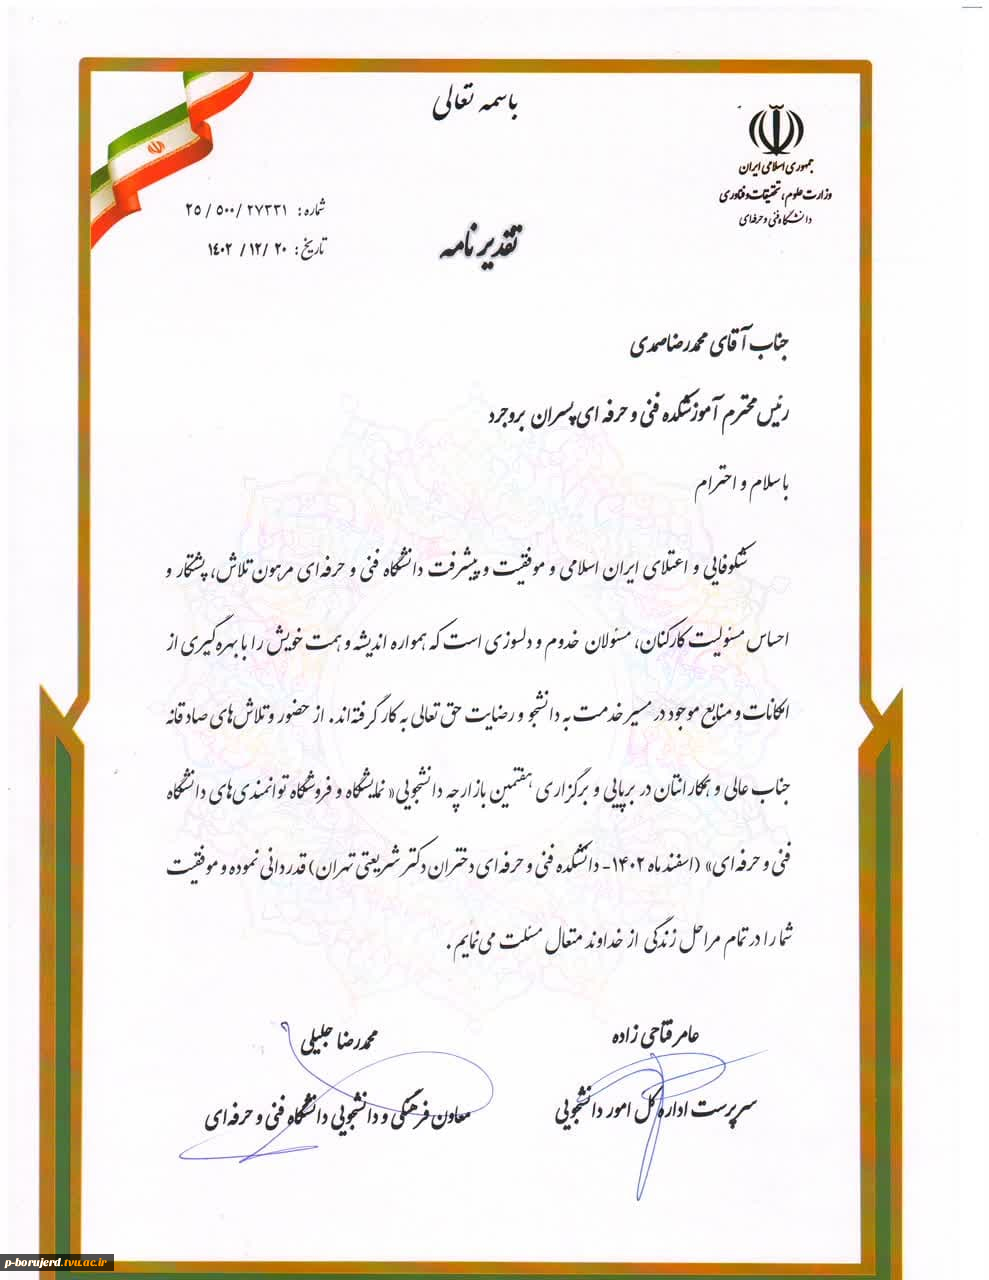 باسمه تعالی
جمهوری اسلامی ایران
وزارت علوم، تحقیقات و فناوری
دانشگاه فنی و حرفه‌ای
شماره: ۲۵/۵۰۰/۲۷۳۳۱
تاریخ: ۱۴۰۲/۱۲/۲۰
تقدیرنامه
جناب آقای محمدرضا صمدی
رئیس محترم آموزشکده فنی و حرفه ای پسران بروجرد
با سلام و احترام
شکوفایی و اعتلای ایران اسلامی و موفقیت و پیشرفت دانشگاه فنی و حرفه‌ای مرهون تلاش، پشتکار و
احساس مسئولیت کارکنان، مسئولان خدوم و دلسوزی است که همواره اندیشه و همت خویش را با بهره‌گیری از
امکانات و منابع موجود در مسیر خدمت به دانشجو و رضایت حق تعالی به کار گرفته‌اند. از حضور و تلاش‌های صادقانه
جناب عالی و همکارانتان در برپایی و برگزاری هفتمین بازارچه دانشجویی« نمایشگاه و فروشگاه توانمندی‌های دانشگاه
فنی و حرفه‌ای» (اسفند ماه ۱۴۰۲- دانشکده فنی و حرفه‌ای دختران دکتر شریعتی تهران) قدردانی نموده و موفقیت
شما را در تمام مراحل زندگی از خداوند متعال مسئلت می‌نمایم.
عامر فتاحی زاده
سرپرست اداره کل امور دانشجویی
محمدرضا جلیلی
معاون فرهنگی و دانشجویی دانشگاه فنی و حرفه‌ای
p-borujerd.tvu.ac.ir